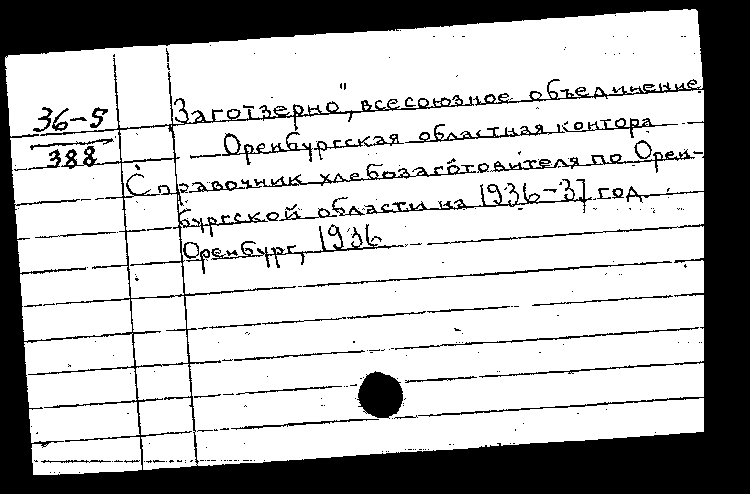 36-5
388
Заготзерно", всесоюзное объединение
Оренбургская областная контора
Справочник хлебозаготовителя по Орен-
бургской области на 1936-37 год.
Оренбург, 1936